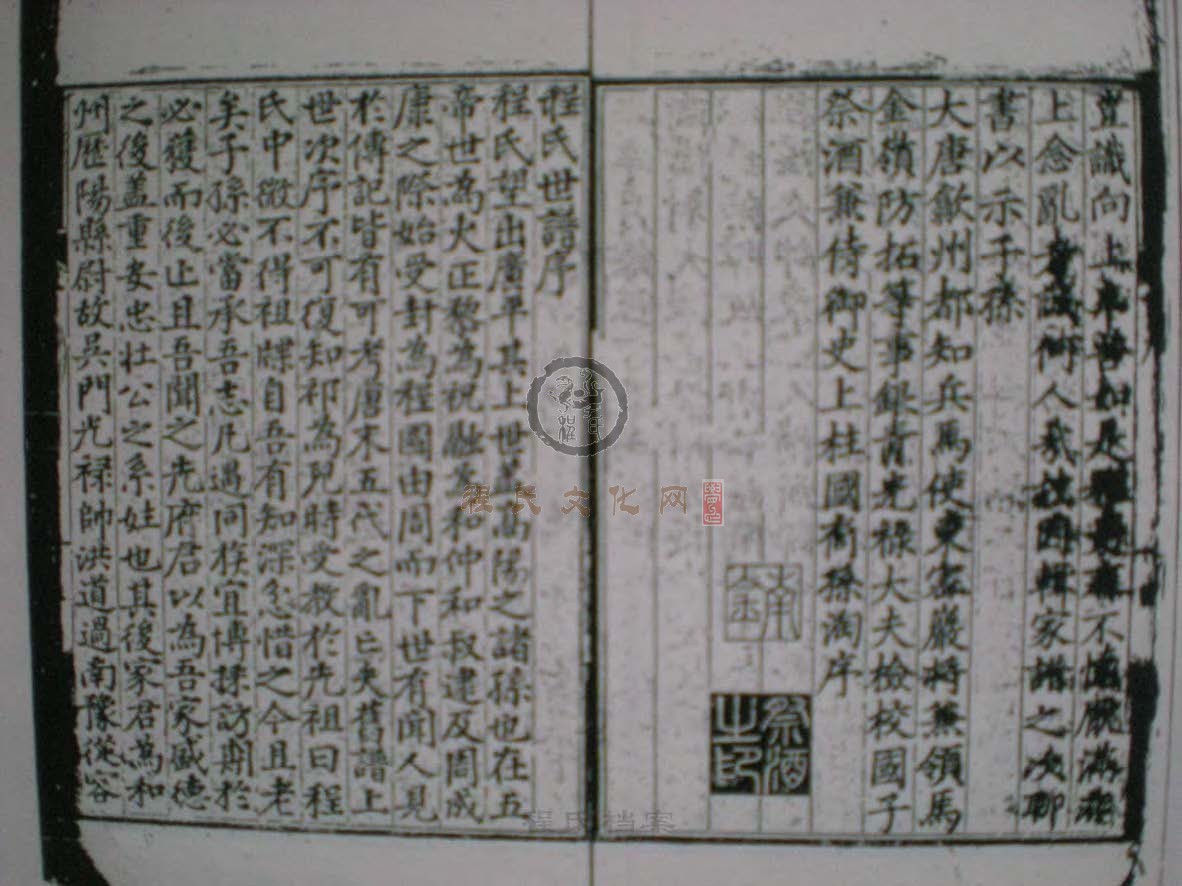 豈識向上
上念亂 家譜之次聊
書以示子孫
大唐歙州都知兵馬使東密巖將兼領馬
金嶺防拓等事銀青光祿大夫檢校國子
祭酒兼侍御史上柱國裔孫淘序
祭酒之印
程氏世譜序
程氏望出廣平其上世蓋高陽之諸孫也在五
帝世為火正黎為祝融為和仲和叔逮及周成
康之際始受封為程國由周而下世有聞人見
於傳記皆有可考唐末五代之亂亡失舊譜上
世次序不可復知祁為兒時受教於先祖曰程
氏中微不得祖牒自吾有知深忿惜之今且老
矣子孫必當承吾志凡過同族宜博採訪期於
必獲而後止且吾聞之先府君以為吾家盛德
之後蓋重安忠壯公之系姓也其後家君為和
州歷陽縣尉故吳門光祿師洪道過南豫從容
程氏文化网
程氏档案